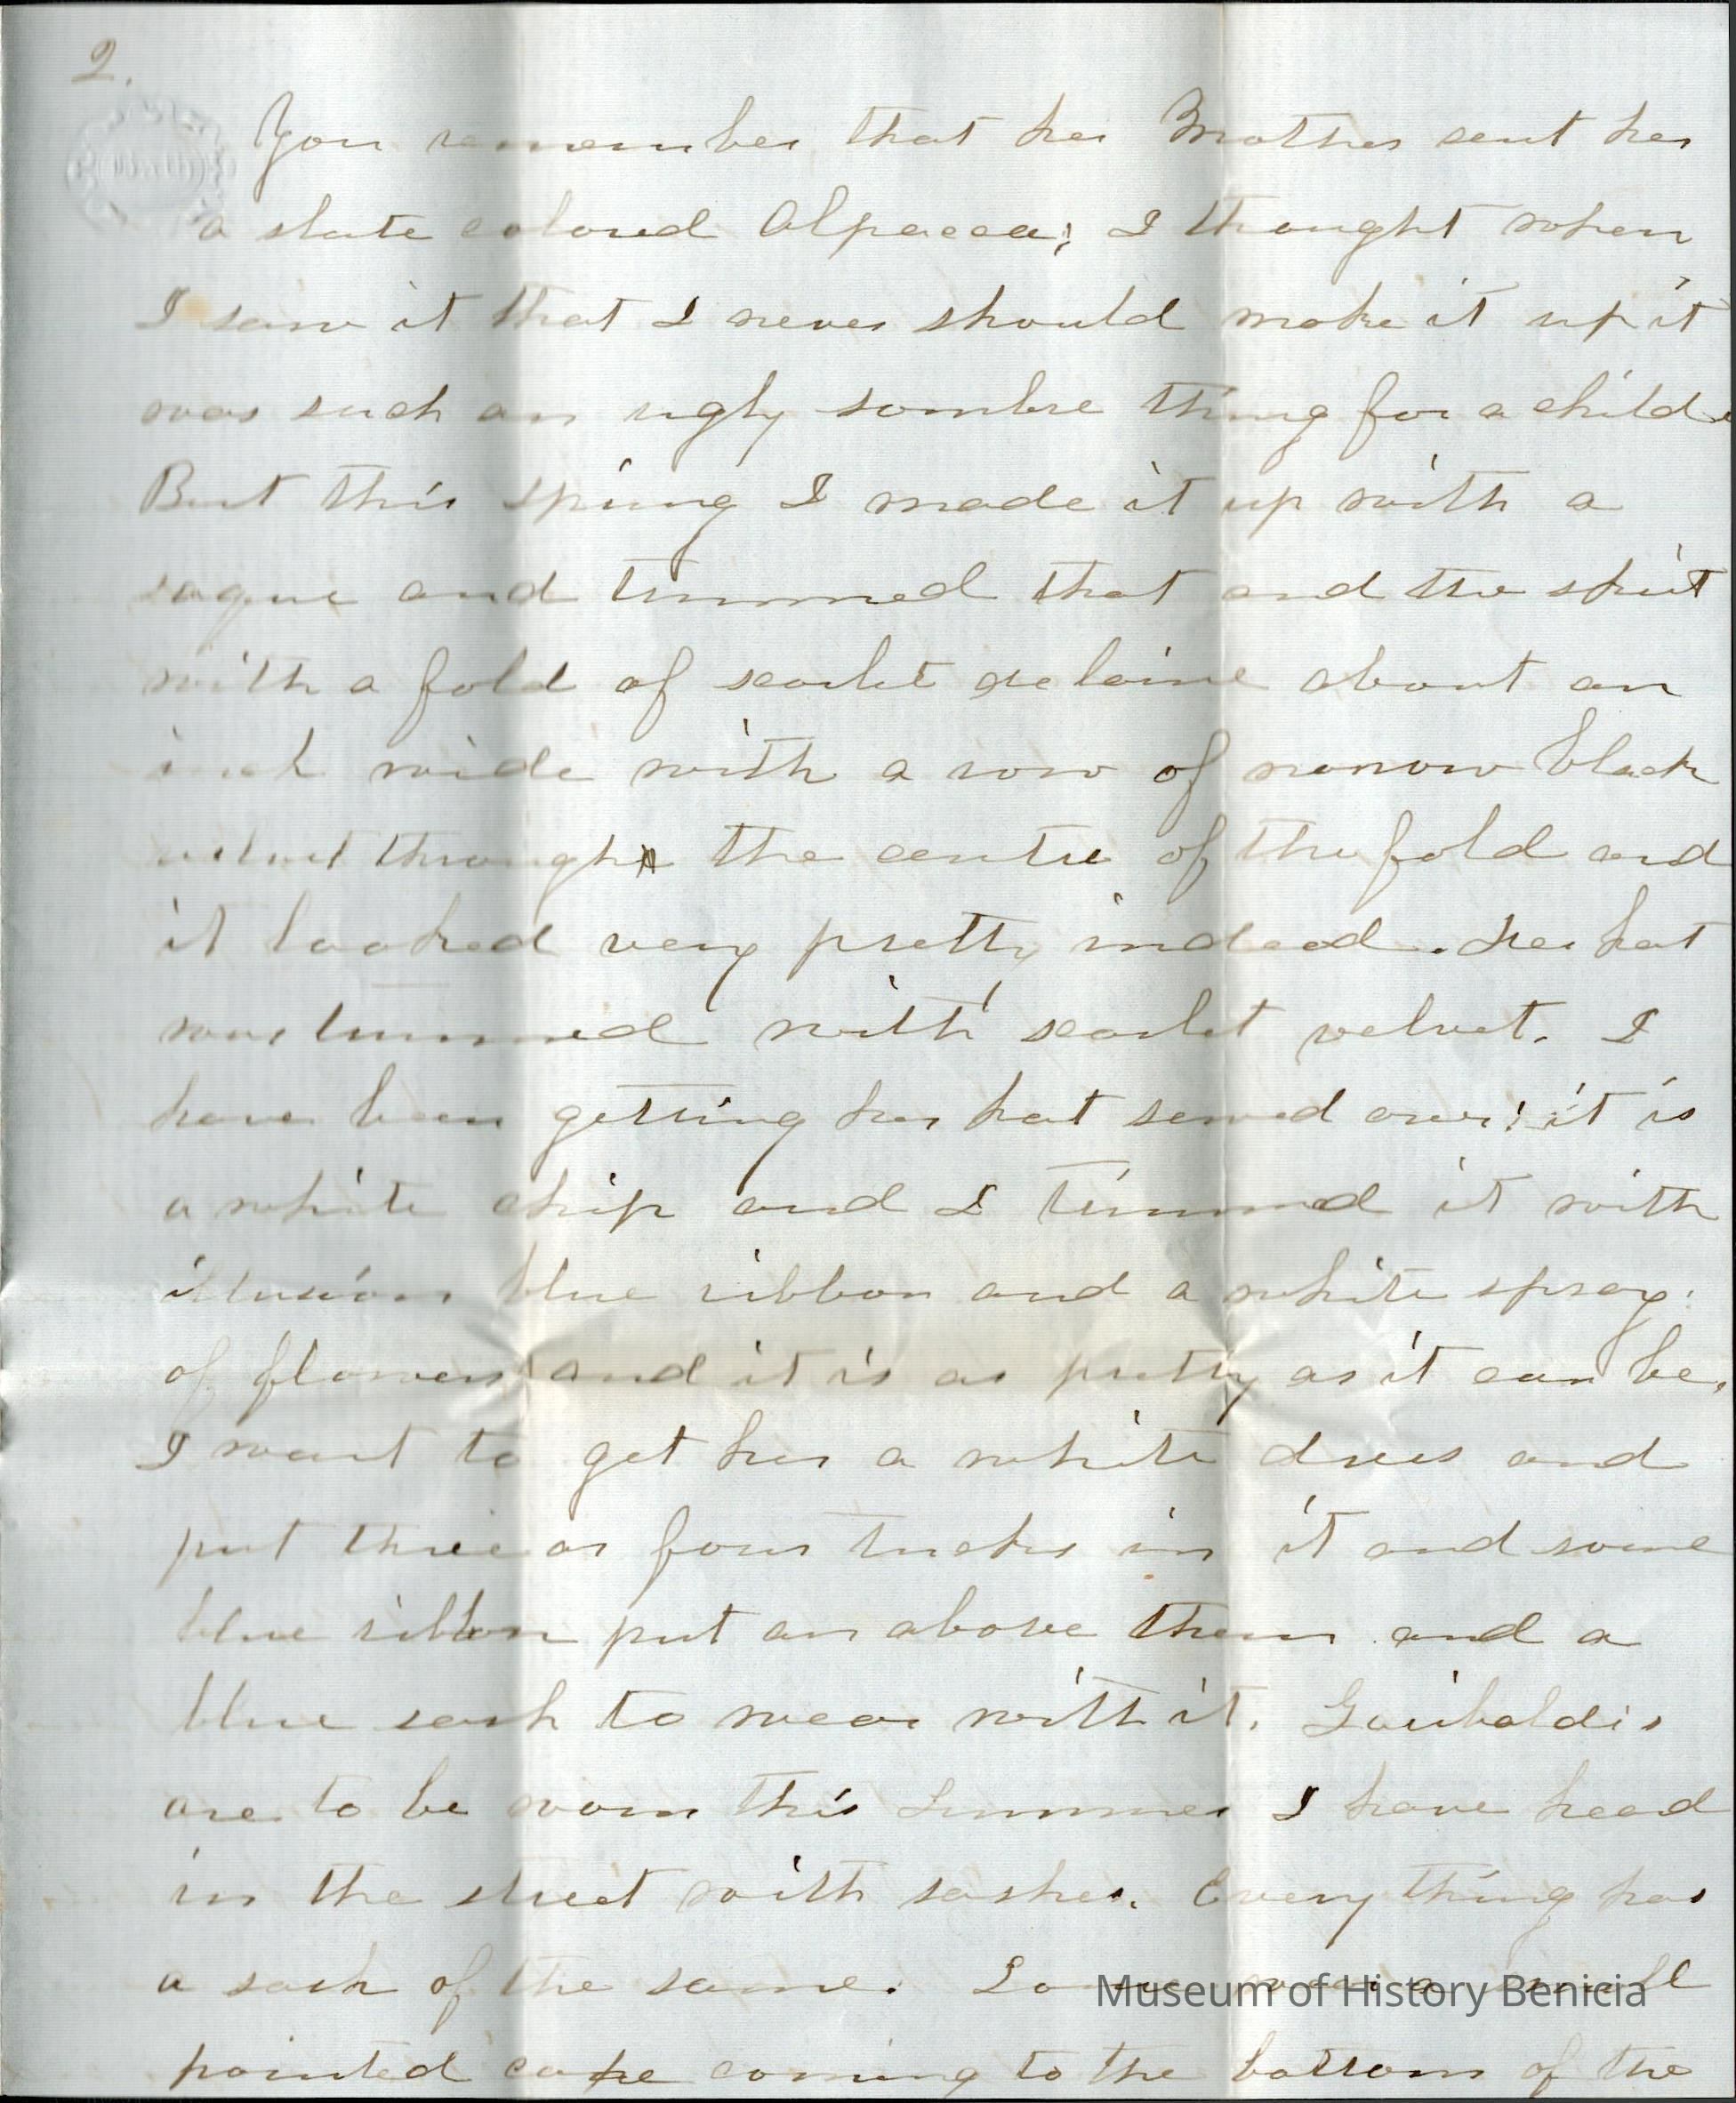 2.
You remember that her Mother sent her
a slate colored Alpacca; I thought when
I saw it that I never should make it up it
was such an ugly sombre thing for a child
But this spring I made it up with a
saque and trimmed that and the skirt
with a fold of scarlet delaine about an
inch wide with a row of narrow black
velvet through the centre of the fold and
it looked very pretty indeed. Her hat
was trimmed with scarlet velvet. I
have been getting her hat sewed over; it is
a white chip and I trimmed it with
illusion blue ribbon and a white spray
of flowers and it is as pretty as it can be.
I want to get her a white dress and
put three or four tucks in it and some
blue ribbon put on above them and a
blue sash to wear with it. Garibaldis
are to be worn this Summer I have heard
in the street with sashes. Every thing has
a sack of the same. Some wear a small
pointed cape coming to the bottom of the
Museum of History Benicia